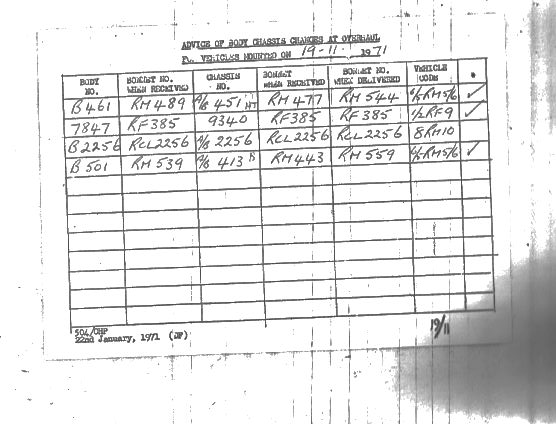 ADVICE OF BODY CHASSIS CHANGES AT OVERHAUL
VEHICLES MOUNTED ON 19-11. 1971
BODY NO. BONNET NO. WHEN RECEIVED CHASSIS NO. BONNET WHEN RECEIVED BONNET NO. WHEN DELIVERED VEHICLE CODE *
B461 RM489 A/B 451 RM477 RM544 RM5/6 ✓
7847 RF385 9340 RF385 RF385 1/2RF9 ✓
B2256 RCL2256 A/B 2256 RCL2256 RCL2256 8RM10
B501 RM539 A/B 413 RM443 RM559 RM5/6 ✓
504/OHP
22nd January, 1971 (JF)
19/11